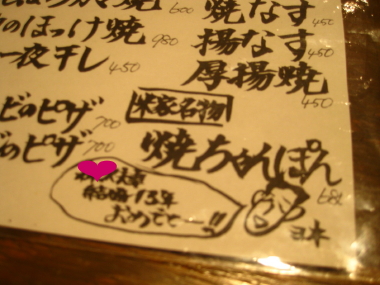 焼なす 450
揚なす 450
厚揚焼 450
のほっけ焼 980
一夜干し 450
ビのピザ 700
のピザ 700
米家名物
焼ちゃんぽん 680
結婚13年
おめでとー!!